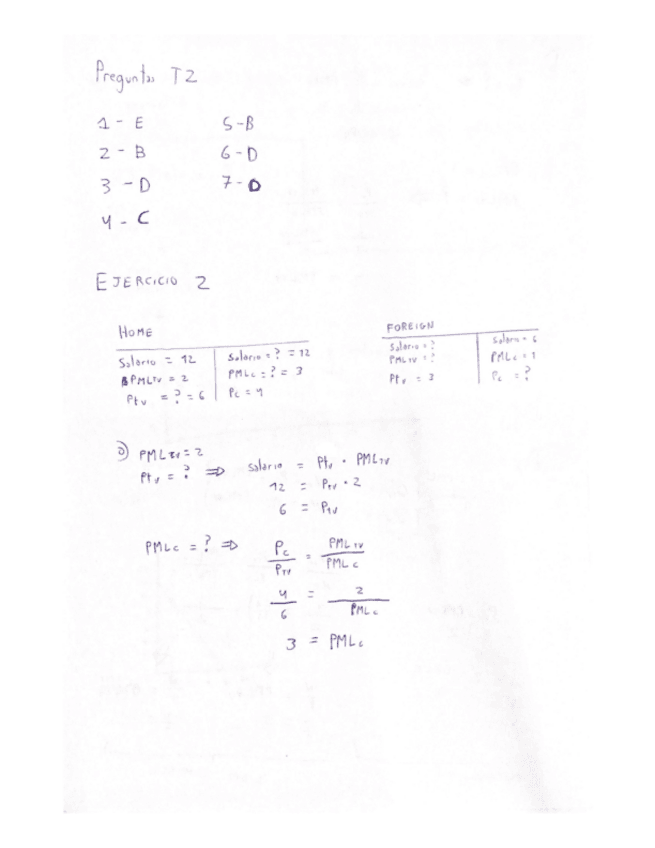 Preguntas T2
1 - E
2 - B
3 - D
4 - C
5 - B
6 - D
7 - D
EJERCICIO 2
HOME
Salario = 12
PMLTV = 2
PtV = ? = 6
Salario = ? = 12
PMLC = ? = 3
PC = 4
FOREIGN
Salario = ?
PMLTV = ?
PtV = 3
Salario = 6
PMLC = 1
PC = ?
a) PMLTV = 2
PtV = ? ⇒ Salario = PtV · PMLTV
12 = PTV · 2
6 = PTV
PMLC = ? ⇒ PC / PTV = PMLTV / PMLC
4 / 6 = 2 / PMLC
3 = PMLC